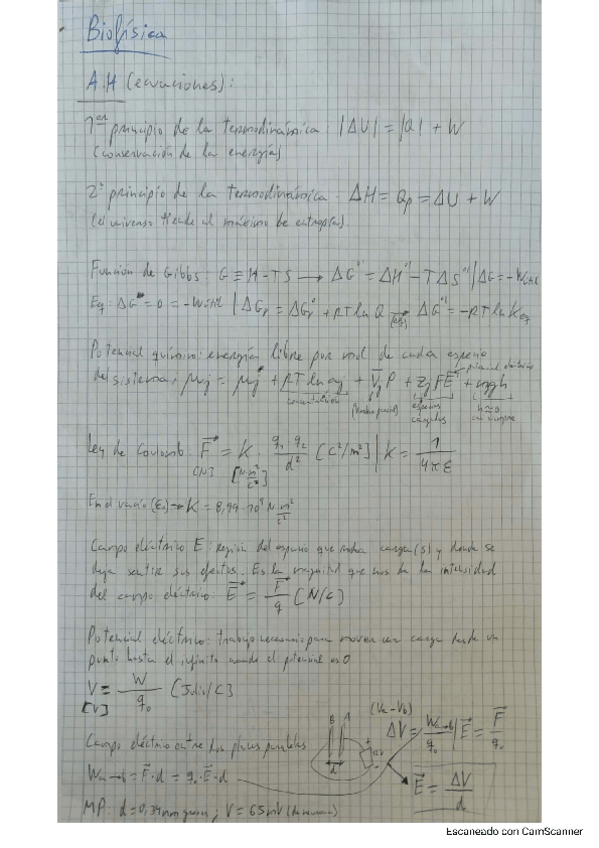 Biofísica
A.H (ecuaciones):
1er principio de la termodinámica: |ΔU| = |Q| + W
(conservación de la energía)
2º principio de la termodinámica: ΔH = Qp = ΔU + W
(el universo tiende al máximo de entropía).
Función de Gibbs: G ≡ H - TS → ΔG° = ΔH° - TΔS° | ΔG = -W
Eq: ΔG = 0 = -W | ΔGp = ΔGp° + RT ln Q → (eq) ΔG° = -RT ln Keq
Potencial químico: energía libre por mol de cada especie
potencial eléctrico
del sistema, μj = μj* + RT ln aj + V̄j P + zj F E + mgh
concentración
especies cargadas
h≈0
Ley de Coulomb: F = K · q1 · q2 / d² [C²/m²] | K = 1 / 4πε
[N] [N·m²/C²]
En el vacío (ε0) → K = 8,99 · 10⁹ N·m²/C²
Campo eléctrico E: región del espacio que rodea carga(s) y donde se
deja sentir sus efectos. Es la magnitud que nos da la intensidad
del campo eléctrico: E = F / q [N/C]
Potencial eléctrico: trabajo necesario para mover una carga desde un
punto hasta el infinito cuando el potencial es 0
V = W / q0 [Julio/C]
[V]
(Va - Vb)
B A
ΔV = Wa→b / q0 | E = F / q0
Campo eléctrico entre dos placas paralelas
d
Wa→b = F · d = q0 · E · d
E = ΔV / d
MP: d = 0,34 nm ; V = 65 mV
Escaneado con CamScanner